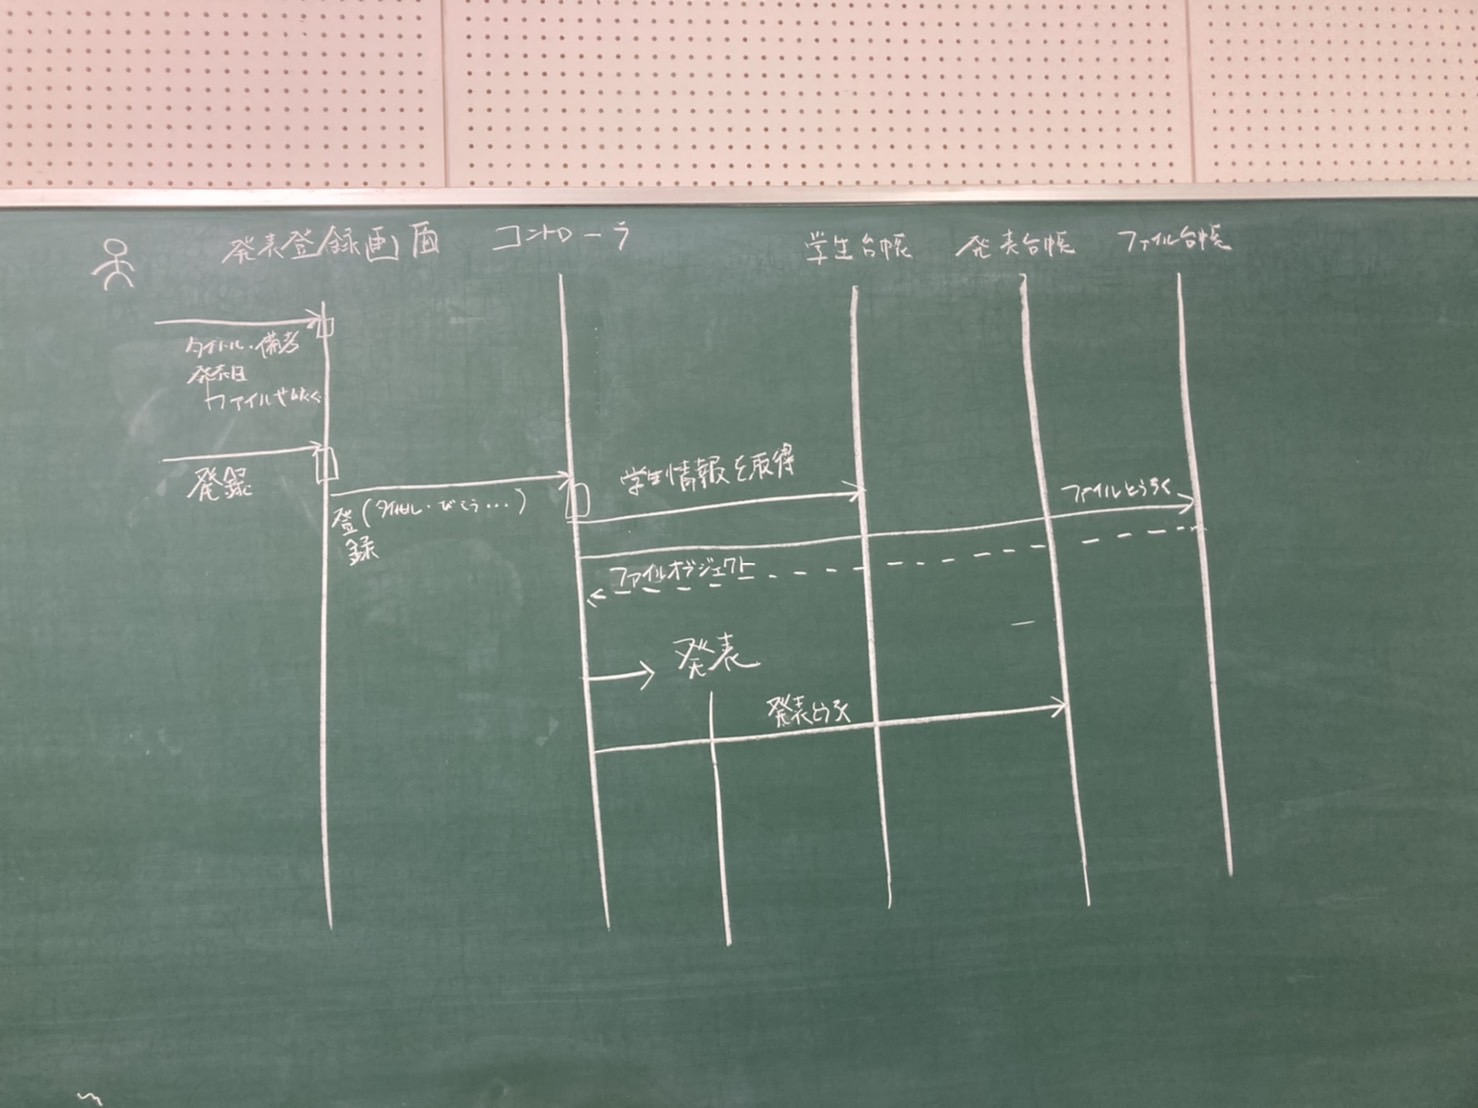 発表登録画面
コントローラ
学生台帳
発表台帳
ファイル台帳
タイトル・備考
発表日
ファイル
登録
登録(タイトル・びこう…)
学生情報を取得
ファイルとうろく
ファイルオブジェクト
発表
発表とうろく